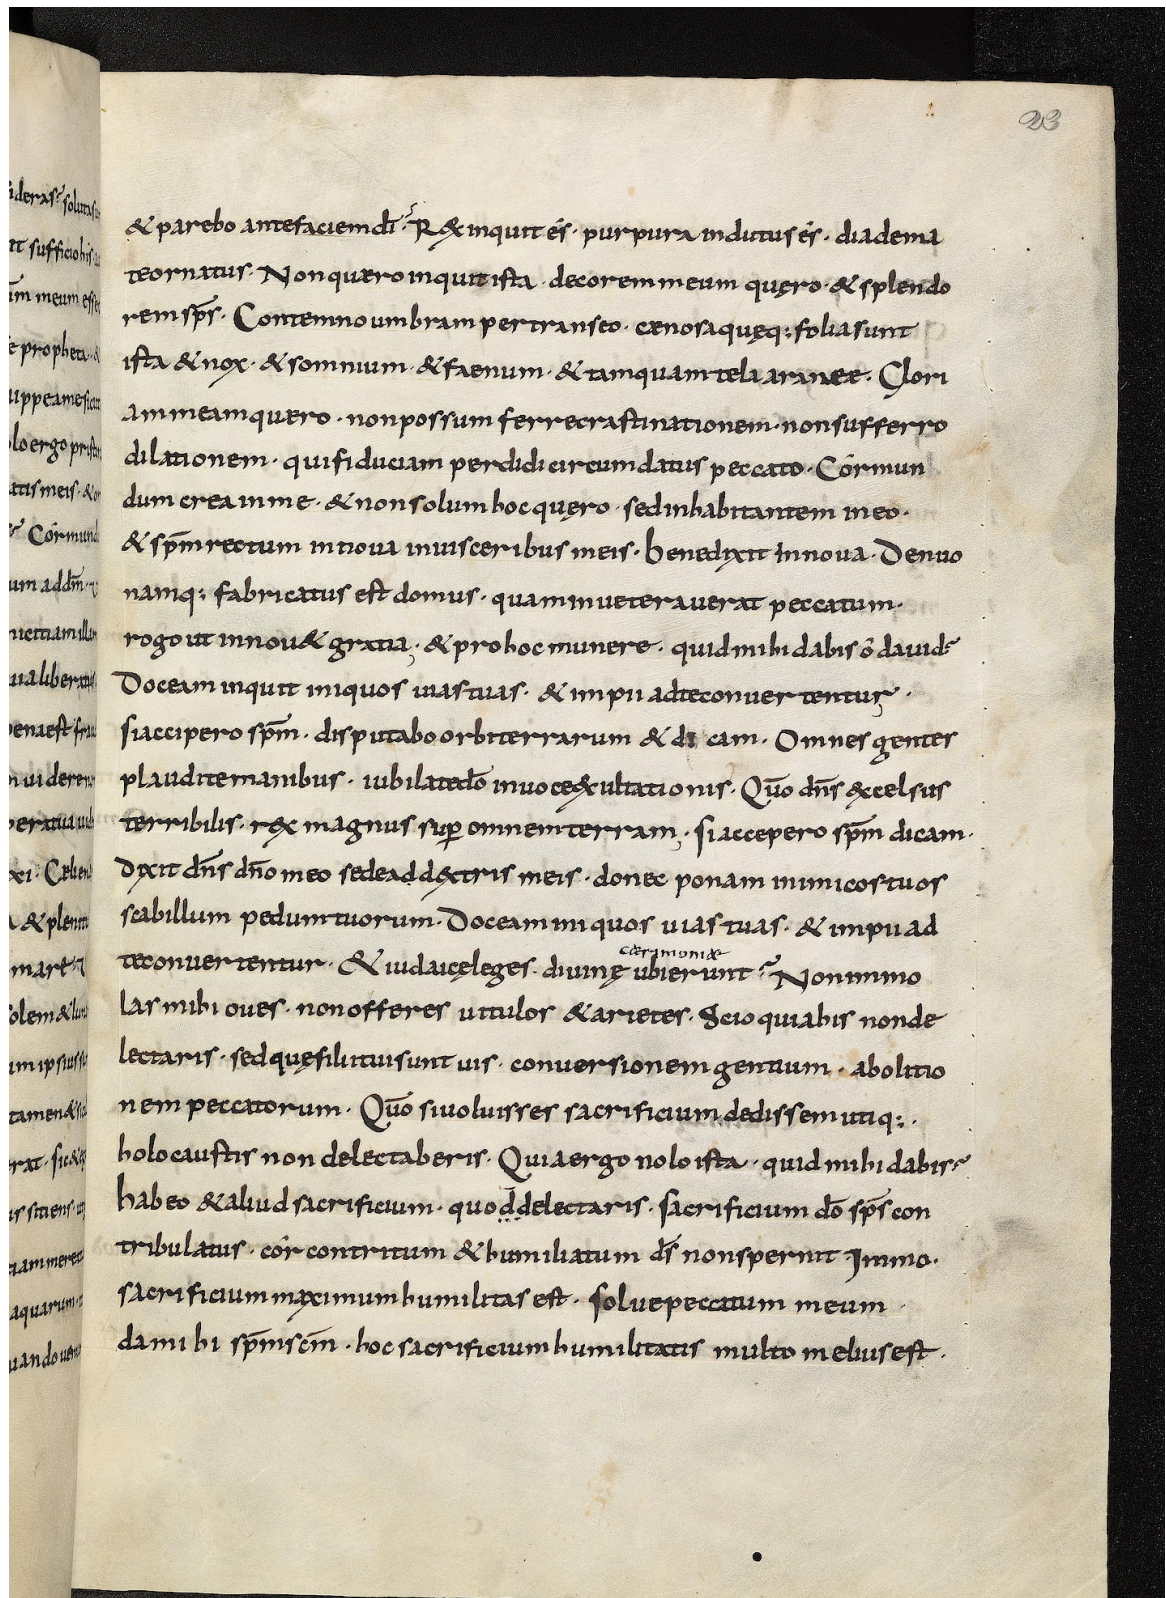 23
& parebo ante faciem dī? R&x inquit és · purpura indutus és · diadema
te ornatus · Non quæro inquit ista · decorem meum quęro · & splendo
rem sp̄s · Contemno umbram pertranseo · cænosa quęq; folia sunt
ista & nox · & somnium · & faenum · & tamquam tela araneæ · Glori
am meam quero · non possum ferre crastinationem · non sufferro
dilationem · qui fiduciam perdidi circumdatus peccato · Cór mun
dum crea in me · & non solum hoc quęro · sed inhabitantem in eo ·
& sp̄m rectum innova in visceribus meis · bene dixit innova · Denuo
namq; fabricatus est domus · quam inveteraverat peccatum ·
rogo ut innov& gratia · & pro hoc munere · quid mihi dabis ó david?
Doceam inquit iniquos vias tuas · & impii ad te convertentur ·
si accipero sp̄m · disputabo orbi terrarum & di cam · Omnes gentes
plaudite manibus · iubilate dō in voce exultationis · Quō dn̄s excelsus
terribilis · rex magnus sup̄ omnem terram · si accepero sp̄m dicam ·
Dixit dn̄s dn̄o meo sede ad d&xtris meis · donec ponam inimicos tuos
scabillum pedum tuorum · Doceam iniquos vias tuas · & impii ad
te convertentur · & iudaicę leges · divinę ubi erunt? Non immo
cærimoniæ
las mihi oves · non offeres vitulos & arietes · Scio quia his non de
lectaris · sed quę filii tui sunt vis · conversionem gentium · abolitio
nem peccatorum · Quō si voluisses sacrificium dedissem utiq; ·
holocaustis non delectaberis · Quia ergo nolo ista · quid mihi dabis?
habeo & aliud sacrificium · quod delectaris · sacrificium dō sp̄s con
tribulatus · cór contritum & humiliatum d̄s non spernit Immo ·
sacrificium maximum humilitas est · solve peccatum meum ·
da mihi sp̄m sc̄m · hoc sacrificium humilitatis multo melius est ·